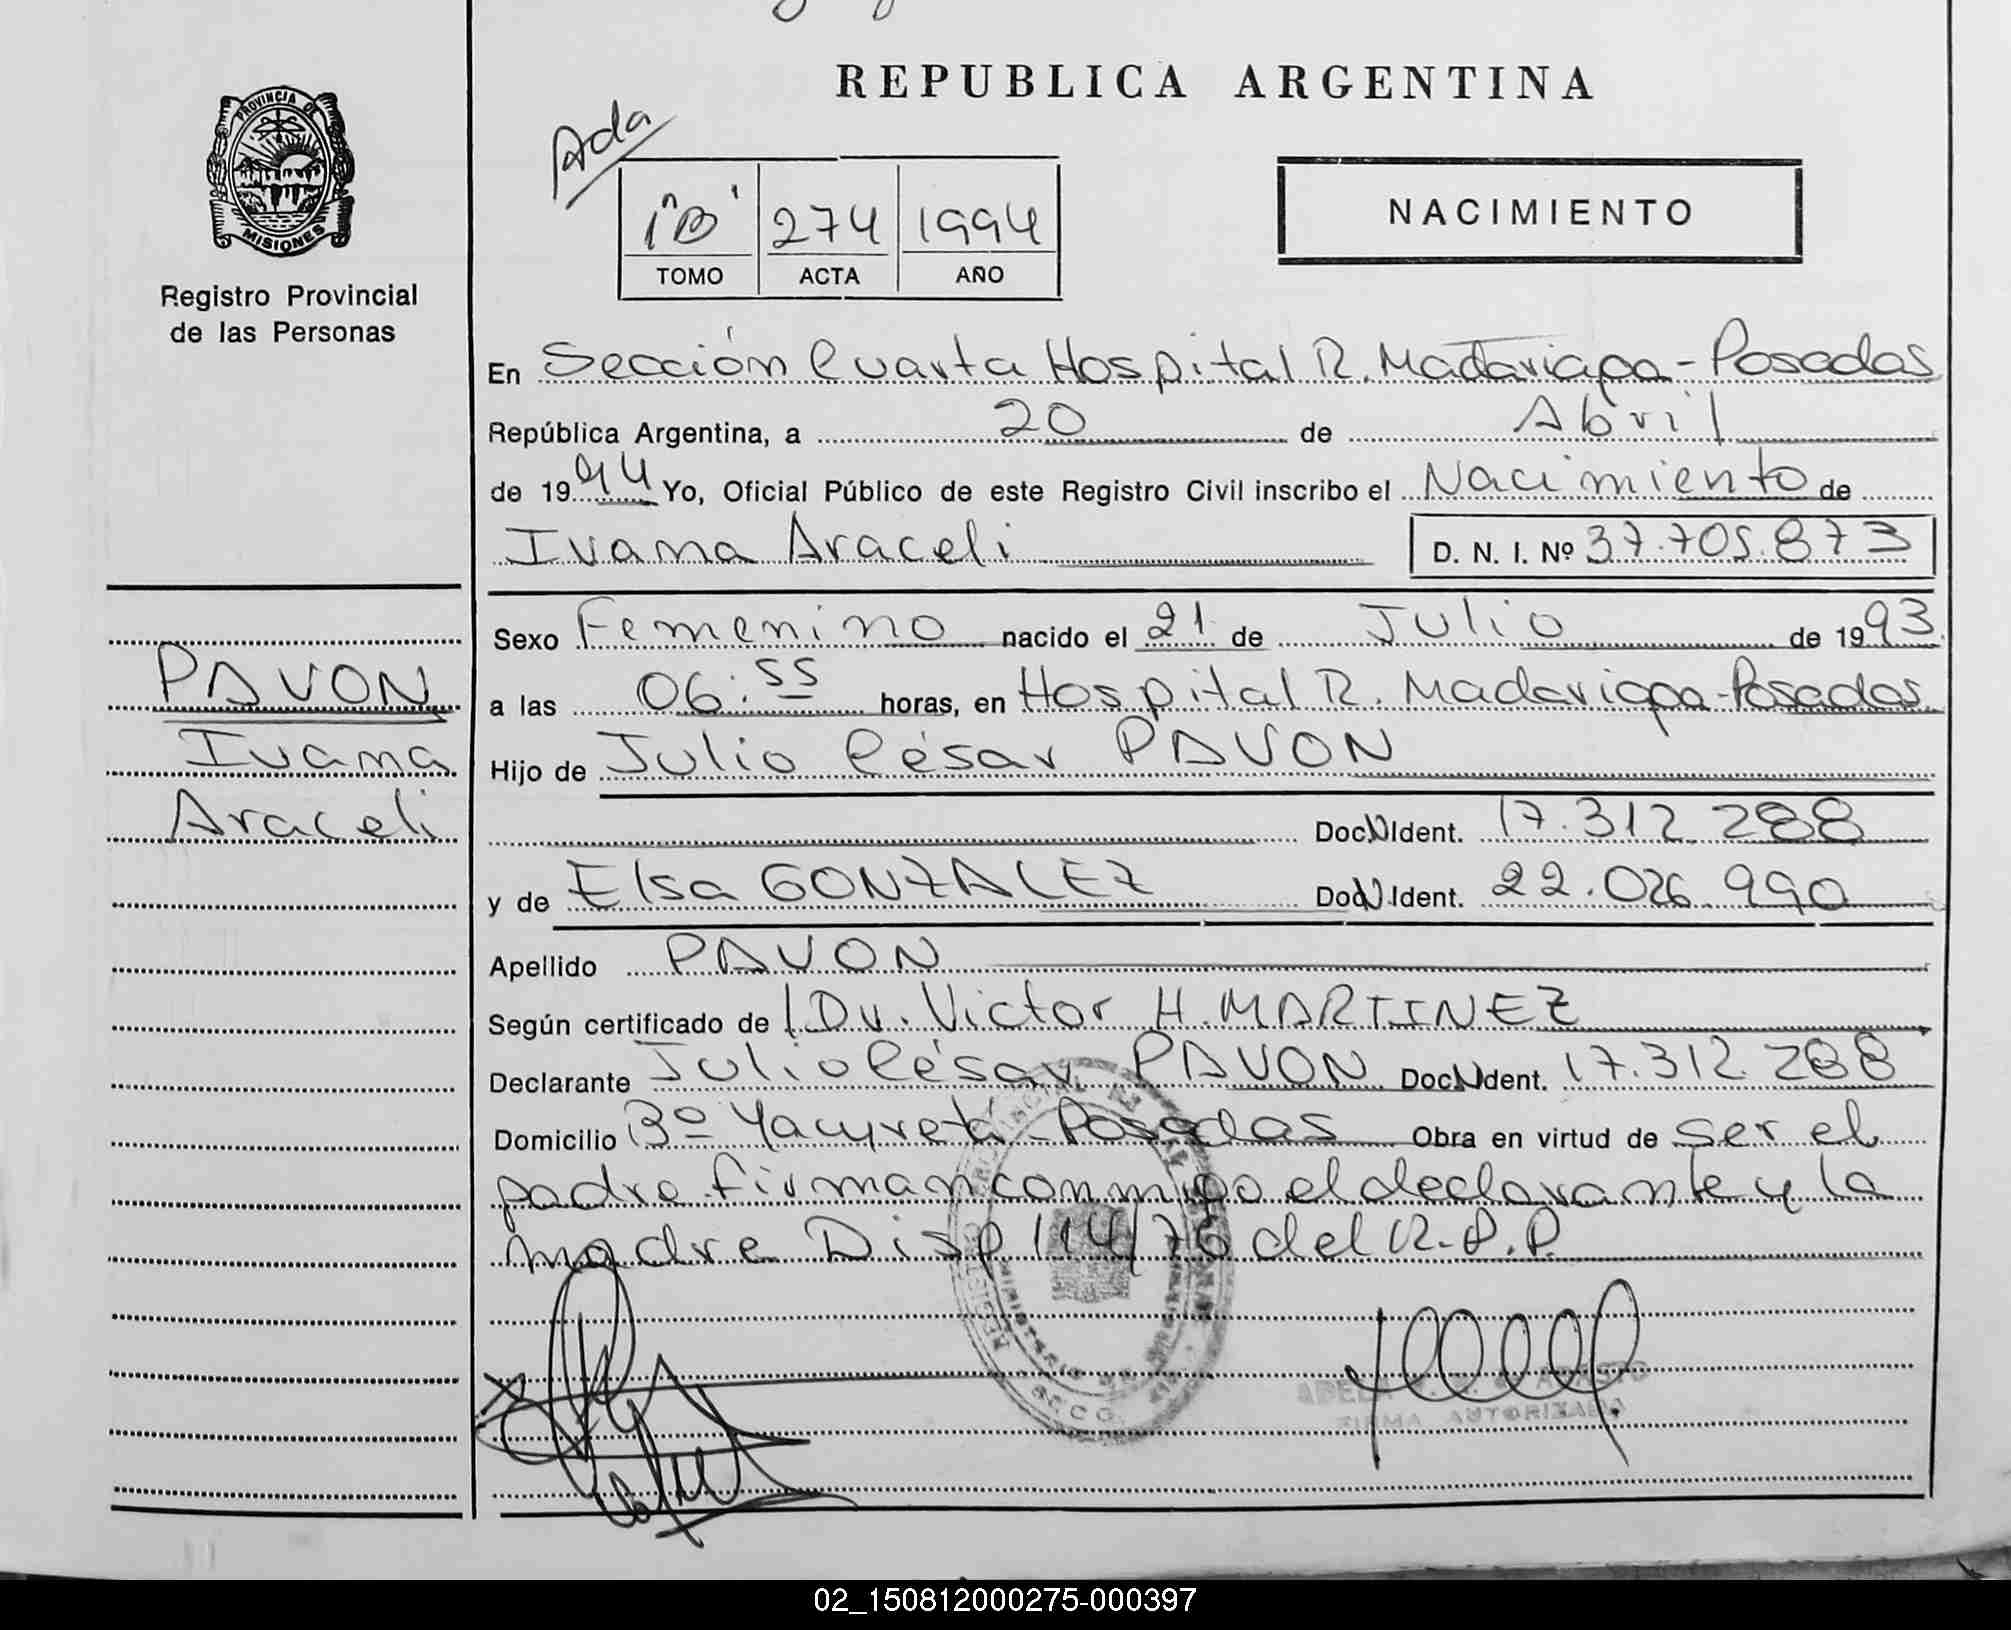 REPUBLICA ARGENTINA
PROVINCIA DE
MISIONES
Registro Provincial
de las Personas
Ada
1"B" 274 1994
TOMO ACTA AÑO
NACIMIENTO
En Sección Cuarta Hospital R. Madariaga - Posadas
República Argentina, a 20 de Abril
de 1994 Yo, Oficial Público de este Registro Civil inscribo el Nacimiento de
Ivana Araceli D. N. I. Nº 37.705.873
Sexo Femenino nacido el 21 de Julio de 1993
PAVON
Ivana
Araceli
a las 06:55 horas, en Hospital R. Madariaga - Posadas
Hijo de Julio César PAVON
Doc. Ident. 17.312.288
y de Elsa GONZALEZ Doc. Ident. 22.026.990
Apellido PAVON
Según certificado de Dr. Victor H. MARTINEZ
Declarante Julio César PAVON Doc. Ident. 17.312.288
Domicilio Bº Yacyretá - Posadas Obra en virtud de ser el
padre firman conmigo el declarante y la
madre Disp 114/76 del R.P.P.
FIRMA AUTORIZADA
02_150812000275-000397